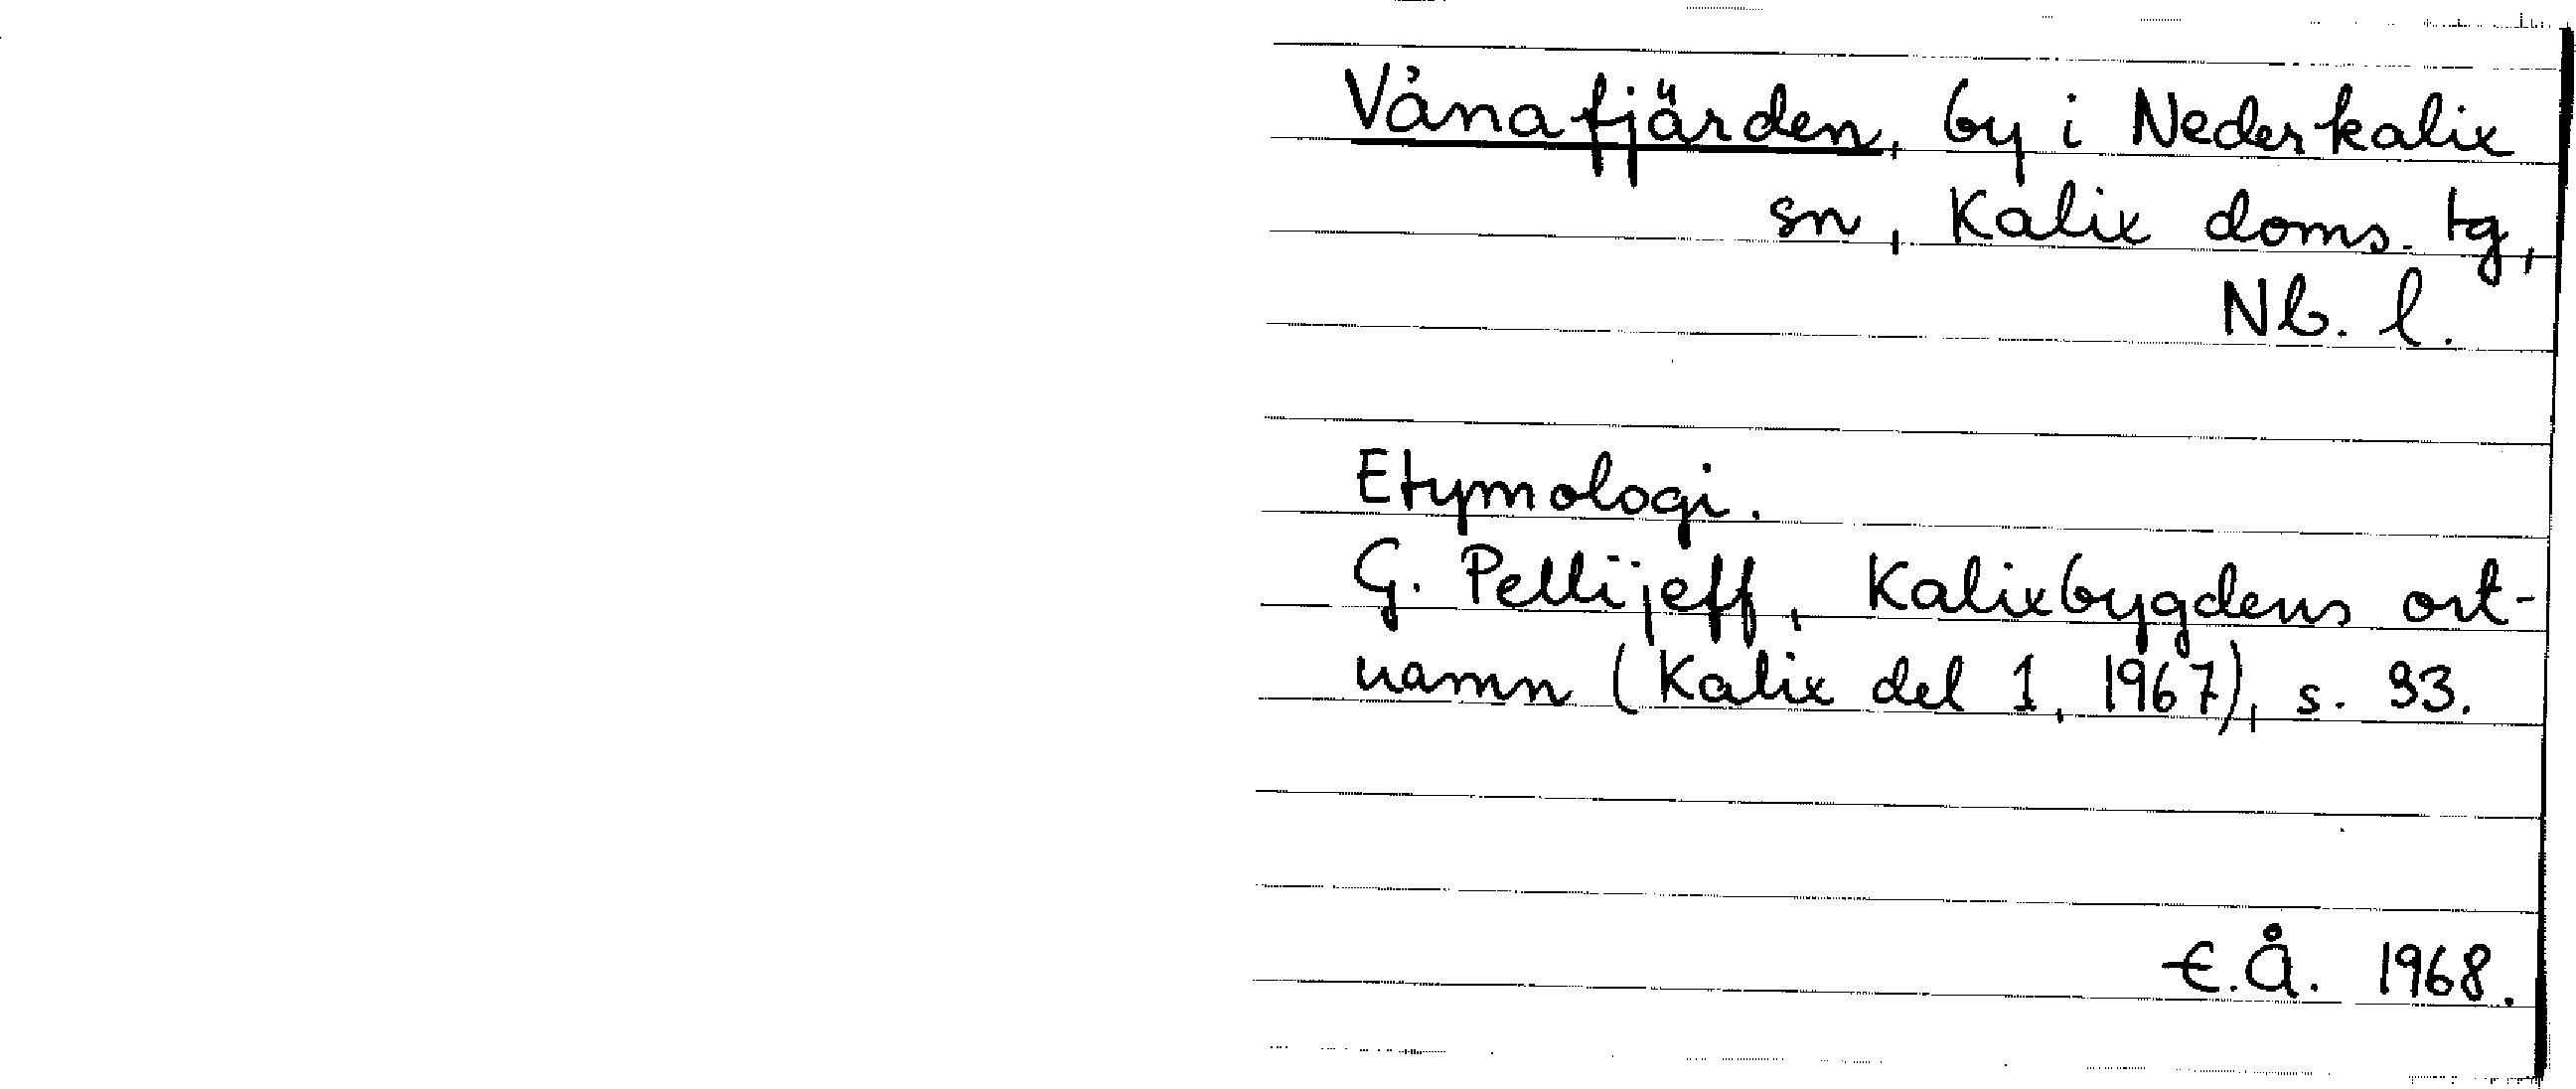 Vånafjärden, by i Nederkalix
sn, Kalix doms. tg,
Nb. l.
Etymologi.
G. Pellijeff, Kalixbygdens ort-
namn (Kalix del 1, 1967), s. 93.
E.Å. 1968.